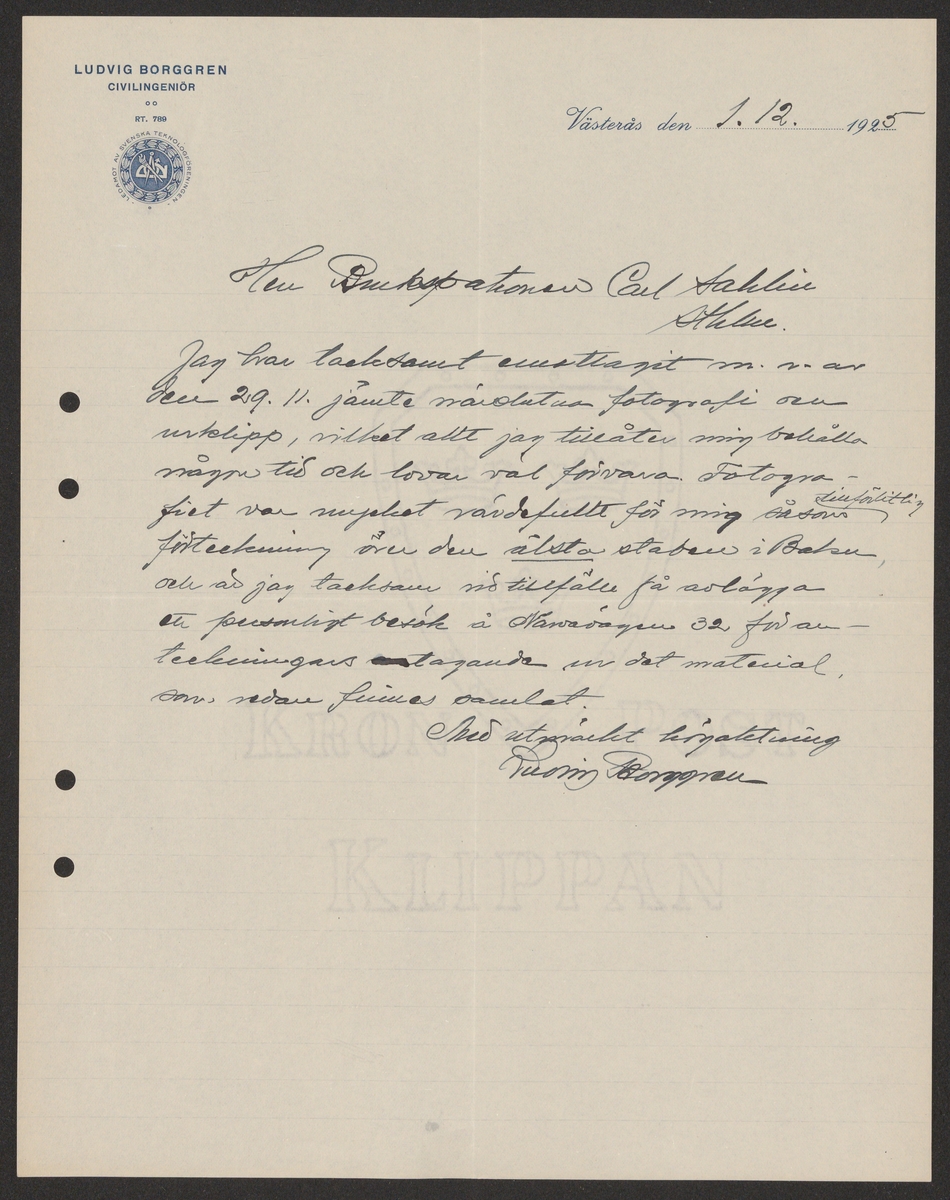 LUDVIG BORGGREN
CIVILINGENIÖR
RT. 789
LEDAMOT AV SVENSKA TEKNOLOGFÖRENINGEN
Västerås den 1. 12. 1925
Herr Brukspatronen Carl Sahlin
Sthlm.
Jag har tacksamt emottagit m. v. av
den 29. 11. jämte värdefulla fotografi och
urklipp, vilket allt jag tillåter mig behålla
någon tid och lovar väl förvara. Fotogra-
fiet var mycket värdefullt för mig såsom tillförlitlig
förteckning över den älsta staben i Baku,
och är jag tacksam vid tillfälle få avlägga
ett personligt besök å Narvavägen 32 för an-
teckningars tagande ur det material,
som redan finnes samlat.
Med utmärkt högaktning
Ludvig Borggren
KRONAN POST
KLIPPAN